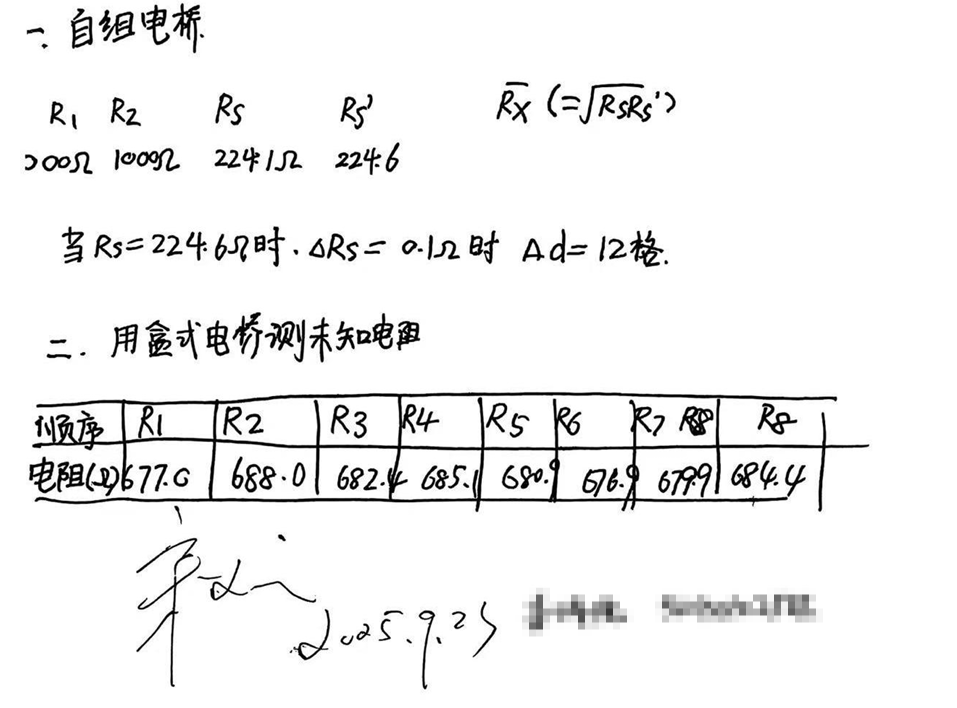 一. 自组电桥
R1 R2 Rs Rs' R̅x̅ (=√RsRs')
200Ω 1000Ω 224.1Ω 224.6
当Rs=224.6Ω时. ΔRs= 0.1Ω时 Δd=12格.
二. 用盒式电桥测未知电阻
顺序 R1 R2 R3 R4 R5 R6 R7 R8
电阻(Ω) 677.0 688.0 682.4 685.1 680.9 676.9 679.9 684.4
2025.9.23